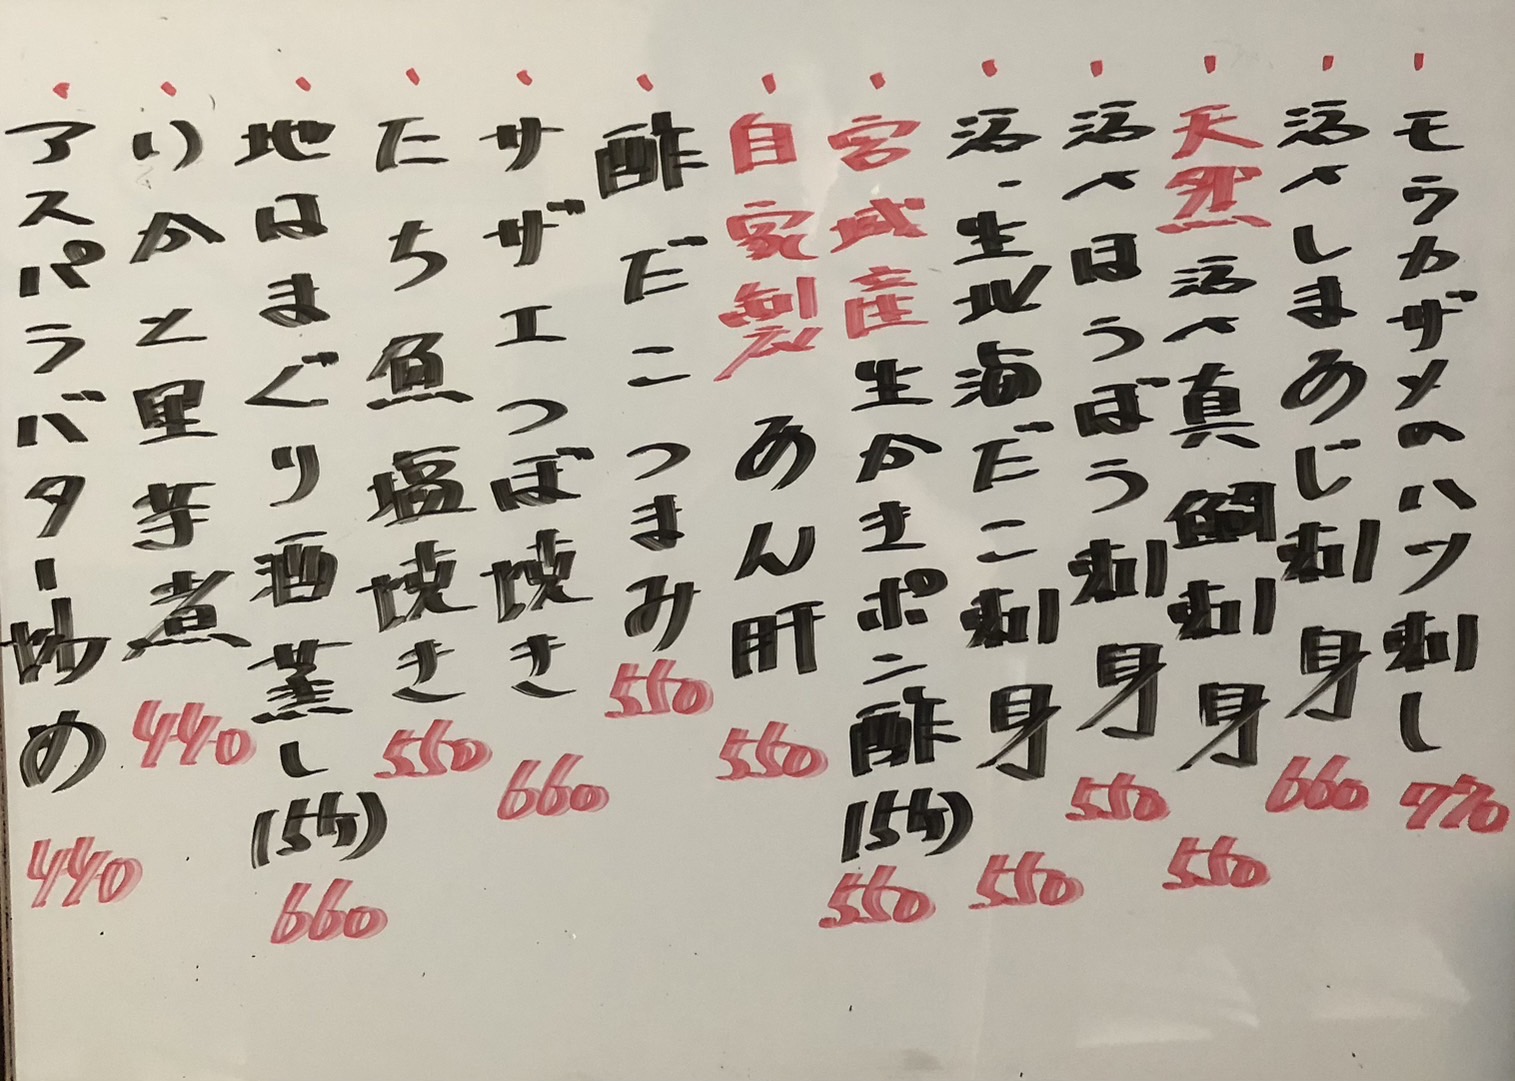 モウカザメのハツ刺し 770
活〆しまあじ刺身 660
天然活〆真鯛刺身 550
活〆ほうぼう刺身 550
活・生地蛸だこ刺身 550
宮城産生かきポン酢(5ヶ) 550
自家製あん肝 550
酢だこつまみ 550
サザエつぼ焼き 660
たち魚塩焼き 550
地はまぐり酒蒸し(5ケ) 660
いかと里芋煮 440
アスパラバター炒め 440